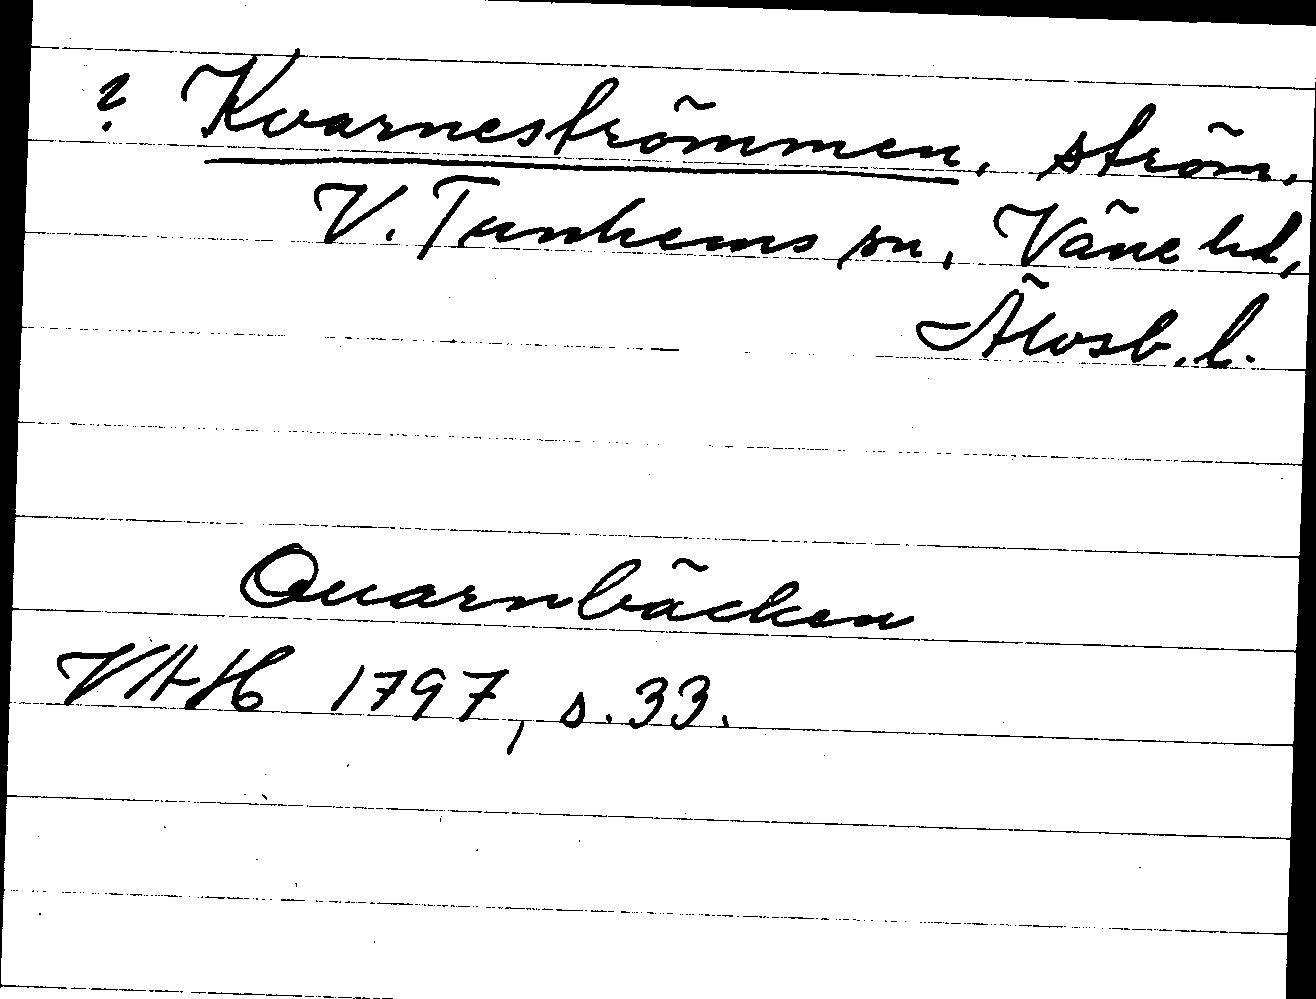 ? Kvarneströmmen, ström,
V. Tunhems sn, Väne hd,
Älvsb. l.
Quarnbäcken
VAH 1797, s. 33.